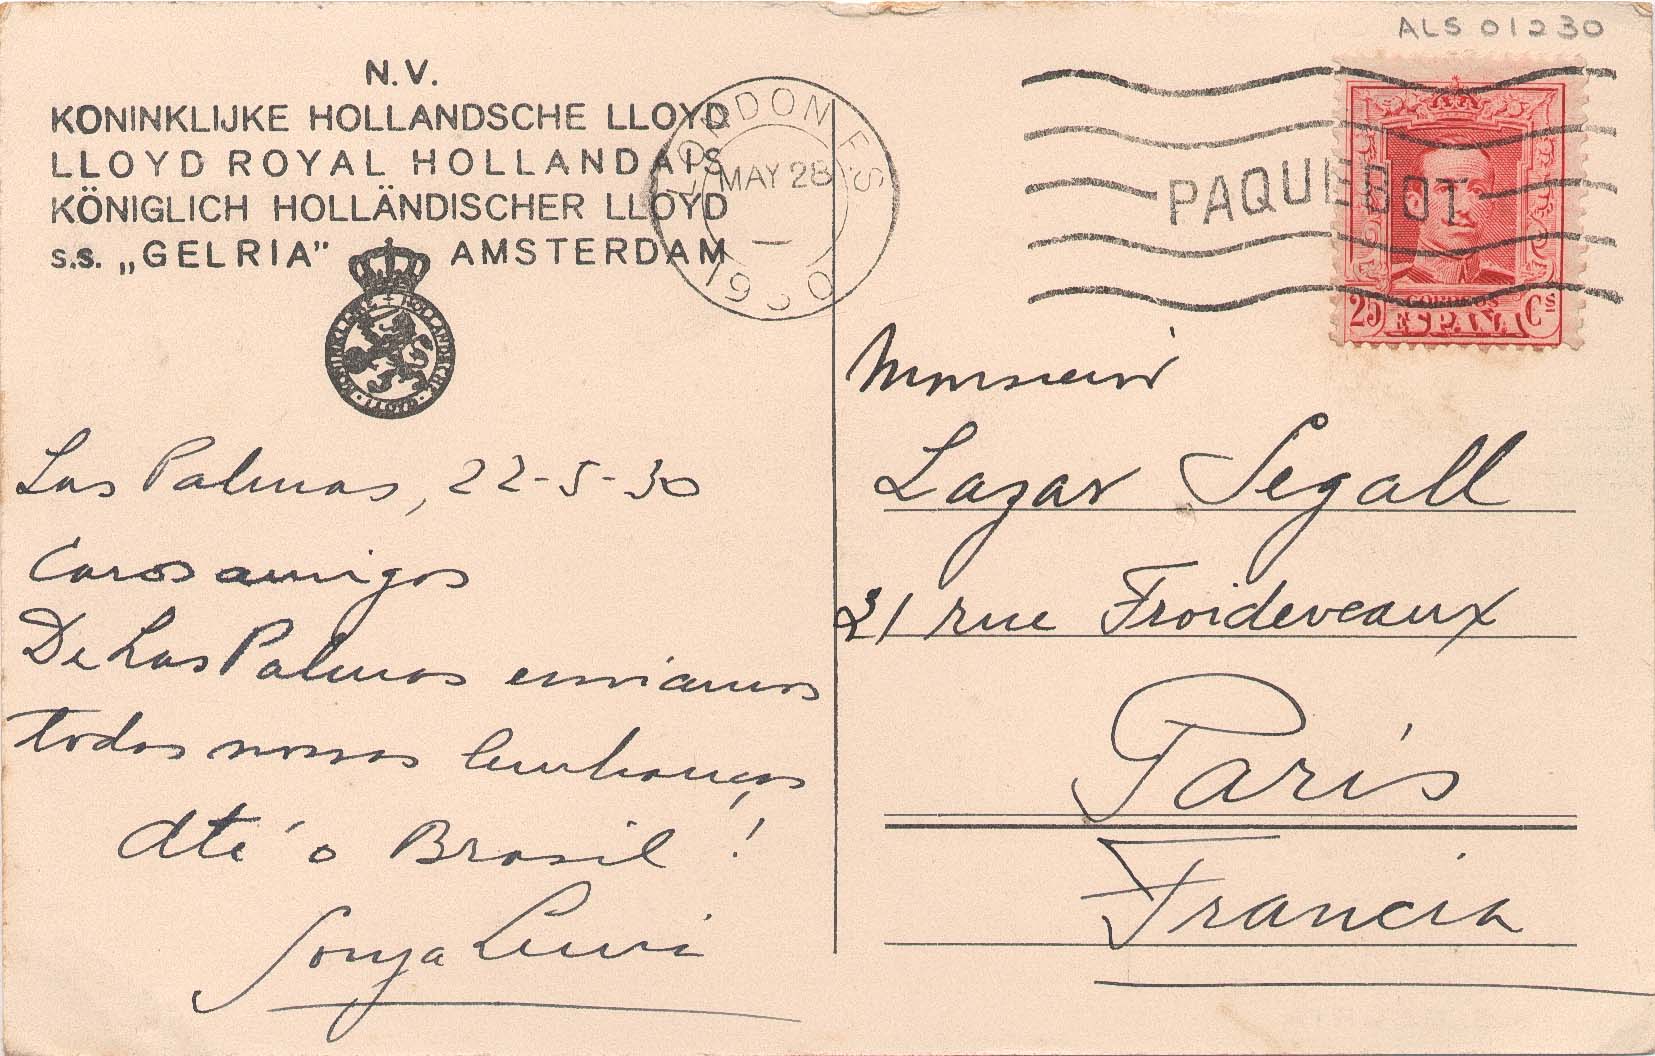 ALS 01230
N.V.
KONINKLIJKE HOLLANDSCHE LLOYD
LLOYD ROYAL HOLLANDAIS
KÖNIGLICH HOLLÄNDISCHER LLOYD
s.s. „GELRIA” AMSTERDAM
KONINKLIJKE HOLLANDSCHE
LLOYD
LONDON F.S.
MAY 28
1930
PAQUEBOT
CORREOS
25 ESPAÑA Cs
Las Palmas, 22-5-30
Caros amigos
De Las Palmas enviamos
todos nossos lembranças
Até o Brasil!
Sonja
Monsieur
Lazar Segall
21 rue Froideveaux
Paris
Francia